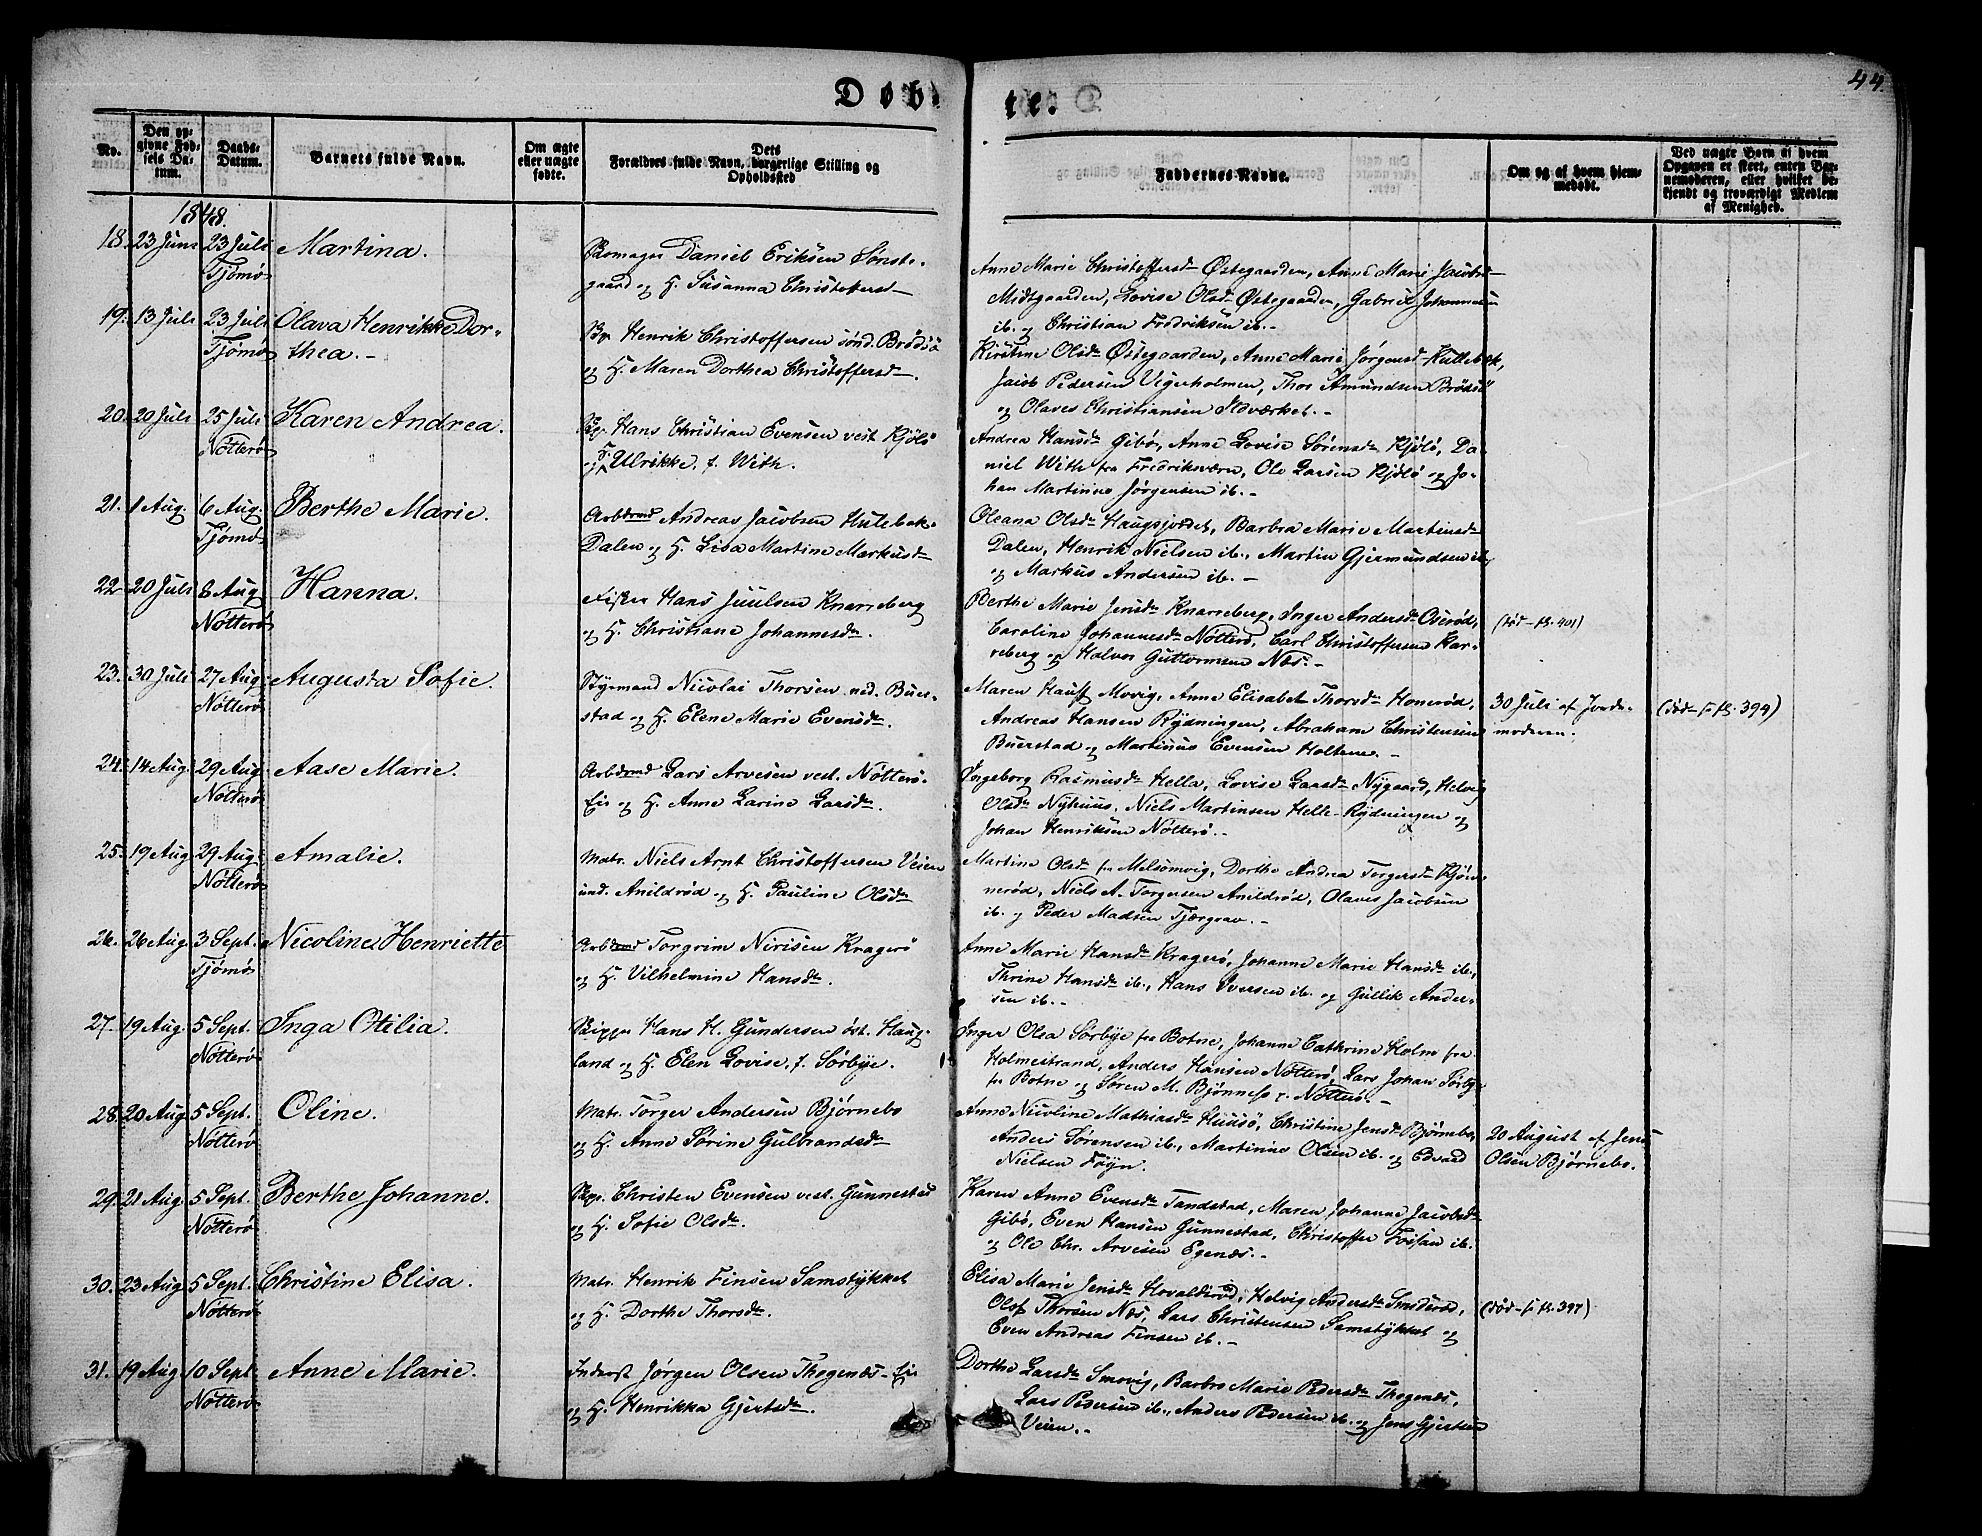 Døbte.
44.
No.
Den opgivne Fødsels Datum.
Daabs-Datum.
Barnets fulde Navn.
Om ægte eller uægte fødte.
Dets Forældres fulde Navn, borgerlige Stilling og Opholdsted
Faddernes Navne.
Om og af hvem hjemmedøbt.
Ved uægte Børn af hvem Opgaven er skeet, enten Barnemoderen, eller hvilket bekjendt og troværdigt Medlem af Menighed.
1848.
18. 23 Juni 23 Juli Tjømø Martina.
Skomager Daniel Eriksen Sønste-
gaard og H. Susanna Christoffersd.
Anne Marie Christoffersd. Østegaarden, Anne Marie Jacobsd.
Midtgaarden, Lovise Olsd. Østegaarden, Gabriel Johannesen
ib. og Christian Fredriksen ib.-
19. 13 Juli 23 Juli Tjømø Olava Henrikke Dor-
thea.-
Bp. Henrik Christoffersen sønd. Brødsø
og H. Maren Dorthea Christoffersd.
Kirstine Olsd. Østegaarden, Anne Marie Jørgensd. Hullebæk,
Jacob Pedersen Vegerholmen, Thor Amundsen Brødsø
og Olaves Christiansen Ildværket.-
20. 20 Juli 25 Juli Nøtterø Karen Andrea.
Bp. Hans Christian Evensen vest. Kjøls
og H. Ulrikke, f. With.
Andrea Hansd. Gibø, Anne Lovise Sørensd. Kjølø, Da-
niel With fra Fredriksværn, Ole Larsen Kjølø og Jo-
han Martinius Jørgensen ib.-
21. 1 Aug. 6 Aug. Tjømø Berthe Marie.
Arbdsmd Andreas Jacobsen Hulebak-
Dalen og H. Lisa Martine Markusd.
Oleana Olsd. Haugsjordet, Barbra Marie Martinsd.
Dalen, Henrik Nielsen ib., Martin Gjermundsen ib.
og Markus Andersen ib.-
22. 20 Juli 8 Aug Nøtterø Hanna.
Fisker Hans Juulsen Knarreberg
og H. Christiane Johannesd.
Berthe Marie Jensd. Knarreberg, Inger Andersd. Oserød,
Caroline Johannesd. Nøtterø, Carl Christoffersen Kar-
reberg og Halvor Guttormsen Næs.-
(død - fl. 401)
23. 30 Juli 27 Aug. Nøtterø Augusta Sofie.
Styrmand Nicolai Thorsen ned. Buer-
stad og H. Elene Marie Evensd.
Maren Hansd. Movig, Anne Elisabet Thorsd. Honerød,
Andreas Hansen Rydningen, Abraham Christensen
Buerstad og Martinus Evensen Holtene.-
30 Juli af Jorde-
moderen.
(død - fl. 394)
24. 14 Aug. 29 Aug. Nøtterø Aase Marie.
Arbdsmd Lars Arvesen vest. Nøtterø-
Eie og H. Anne Larine Larsd.
Ingeborg Rasmusd. Hella, Lovise Larsd. Nygaard, Helvig
Olsd. Nyhuus, Niels Martinsen Helle-Rydningen og
Johan Henriksen Nøtterø.-
25. 19 Aug 29 Aug. Nøtterø Amalie.
Matr. Niels Arnt Christoffersen Veien
und. Anildrød og H. Pauline Olsd.
Martine Olsd. fra Melsomvig, Dorthe Andrea Torgersd. Kjøn-
nerød, Niels A. Torgersen Anildrød, Olaves Jacobsen
ib. og Peder Madsen Tjærgrav.-
26. 26 Aug. 3 Sept. Tjømø Nicoline Henriette
Arbdsmd Torgrim Nirisen Kragerø
og H. Vilhelmine Hansd.
Anne Marie Hansd. Kragerø, Johanne Marie Hansd. ib.,
Thrine Hansd. ib., Hans Iversen ib. og Gullik Ander-
sen ib.-
27. 19 Aug. 5 Sept. Nøtterø Inga Otilia.
Skipper Hans H. Gundersen øst. Haug-
land og H. Elen Lovise, f. Sørbye.
Inger Olsa Sørbye fra Botne, Johanne Cathrine Holm fra
Holmestrand, Anders Hansen Nøtterø, Lars Johan Sørby
fra Botne og Søren M. Bjønness r. Nøtterø.-
28. 20 Aug. 5 Sept. Nøtterø Oline.
Matr. Torger Andersen Bjørnebo
og H. Anne Sørine Gulbrandsd.
Anne Nicoline Mathiasd. Husø, Christine Jensd. Bjørnebo,
Anders Sørensen ib., Martinius Olsen ib. og Edvard
Nielsen Føyn.
20 August af Jens
Olsen Bjørnebo.
29. 21 Aug 5 Sept. Nøtterø Berthe Johanne.
Skpr. Christen Evensen vest. Gunnestad
og H. Sofie Olsd.
Karen Anne Evensd. Tandstad, Maren Johanne Jacobsd.
Gibø, Even Hansen Gunnestad, Christoffer Fossan ib.
og Ole Chr. Arvesen Egenæs.-
30. 23 Aug 5 Sept. Nøtterø Christine Elisa.
Matr. Henrik Finsen Samstykket
og H. Dorthe Thorsd.
Elisa Marie Jensd. Hovaldsrød, Helvig Andersd. Smiderød,
Olof Thorsen Næs, Lars Christensen Samstykket og
Even Andreas Finsen ib.-
(død - fl. 397)
31. 19 Aug 10 Sept. Nøtterø Anne Marie.
Inderst Jørgen Olsen Thogenæs-Eie
og H. Henrikka Gjertsd.
Dorthe Larsd. Smovig, Barbro Marie Pedersd. Thogenæs,
Lars Pedersen ib., Anders Pedersen ib. og Jens Gjertsen
Veien.-